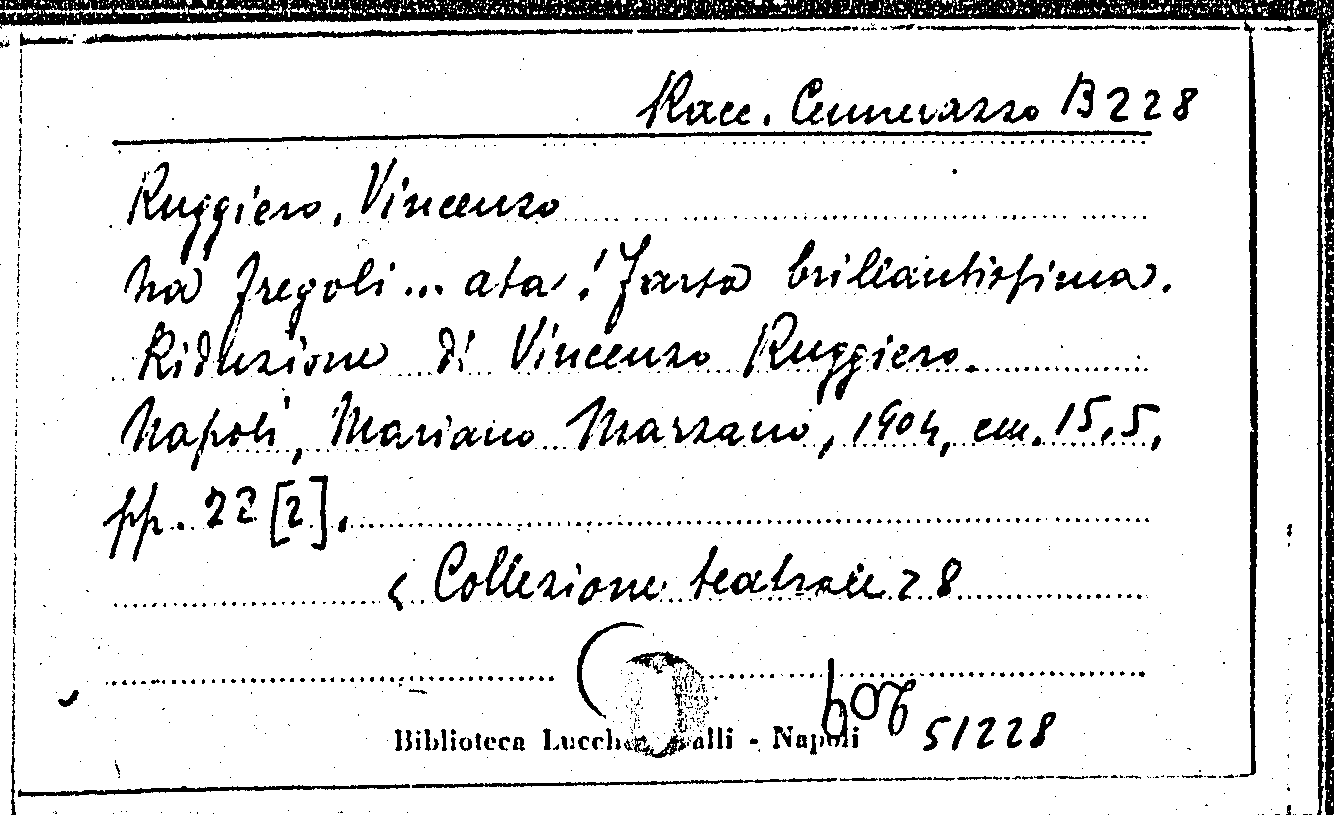 Racc. Cennerazzo B 228
Ruggiero, Vincenzo
Na Fregoli... ata! Farsa brillantissima.
Riduzione di Vincenzo Ruggiero.
Napoli, Mariano Marzano, 1904, cm. 15,5,
pp. 22 [2].
Collezione teatrale 28
Biblioteca Lucchesi Palli - Napoli 51228